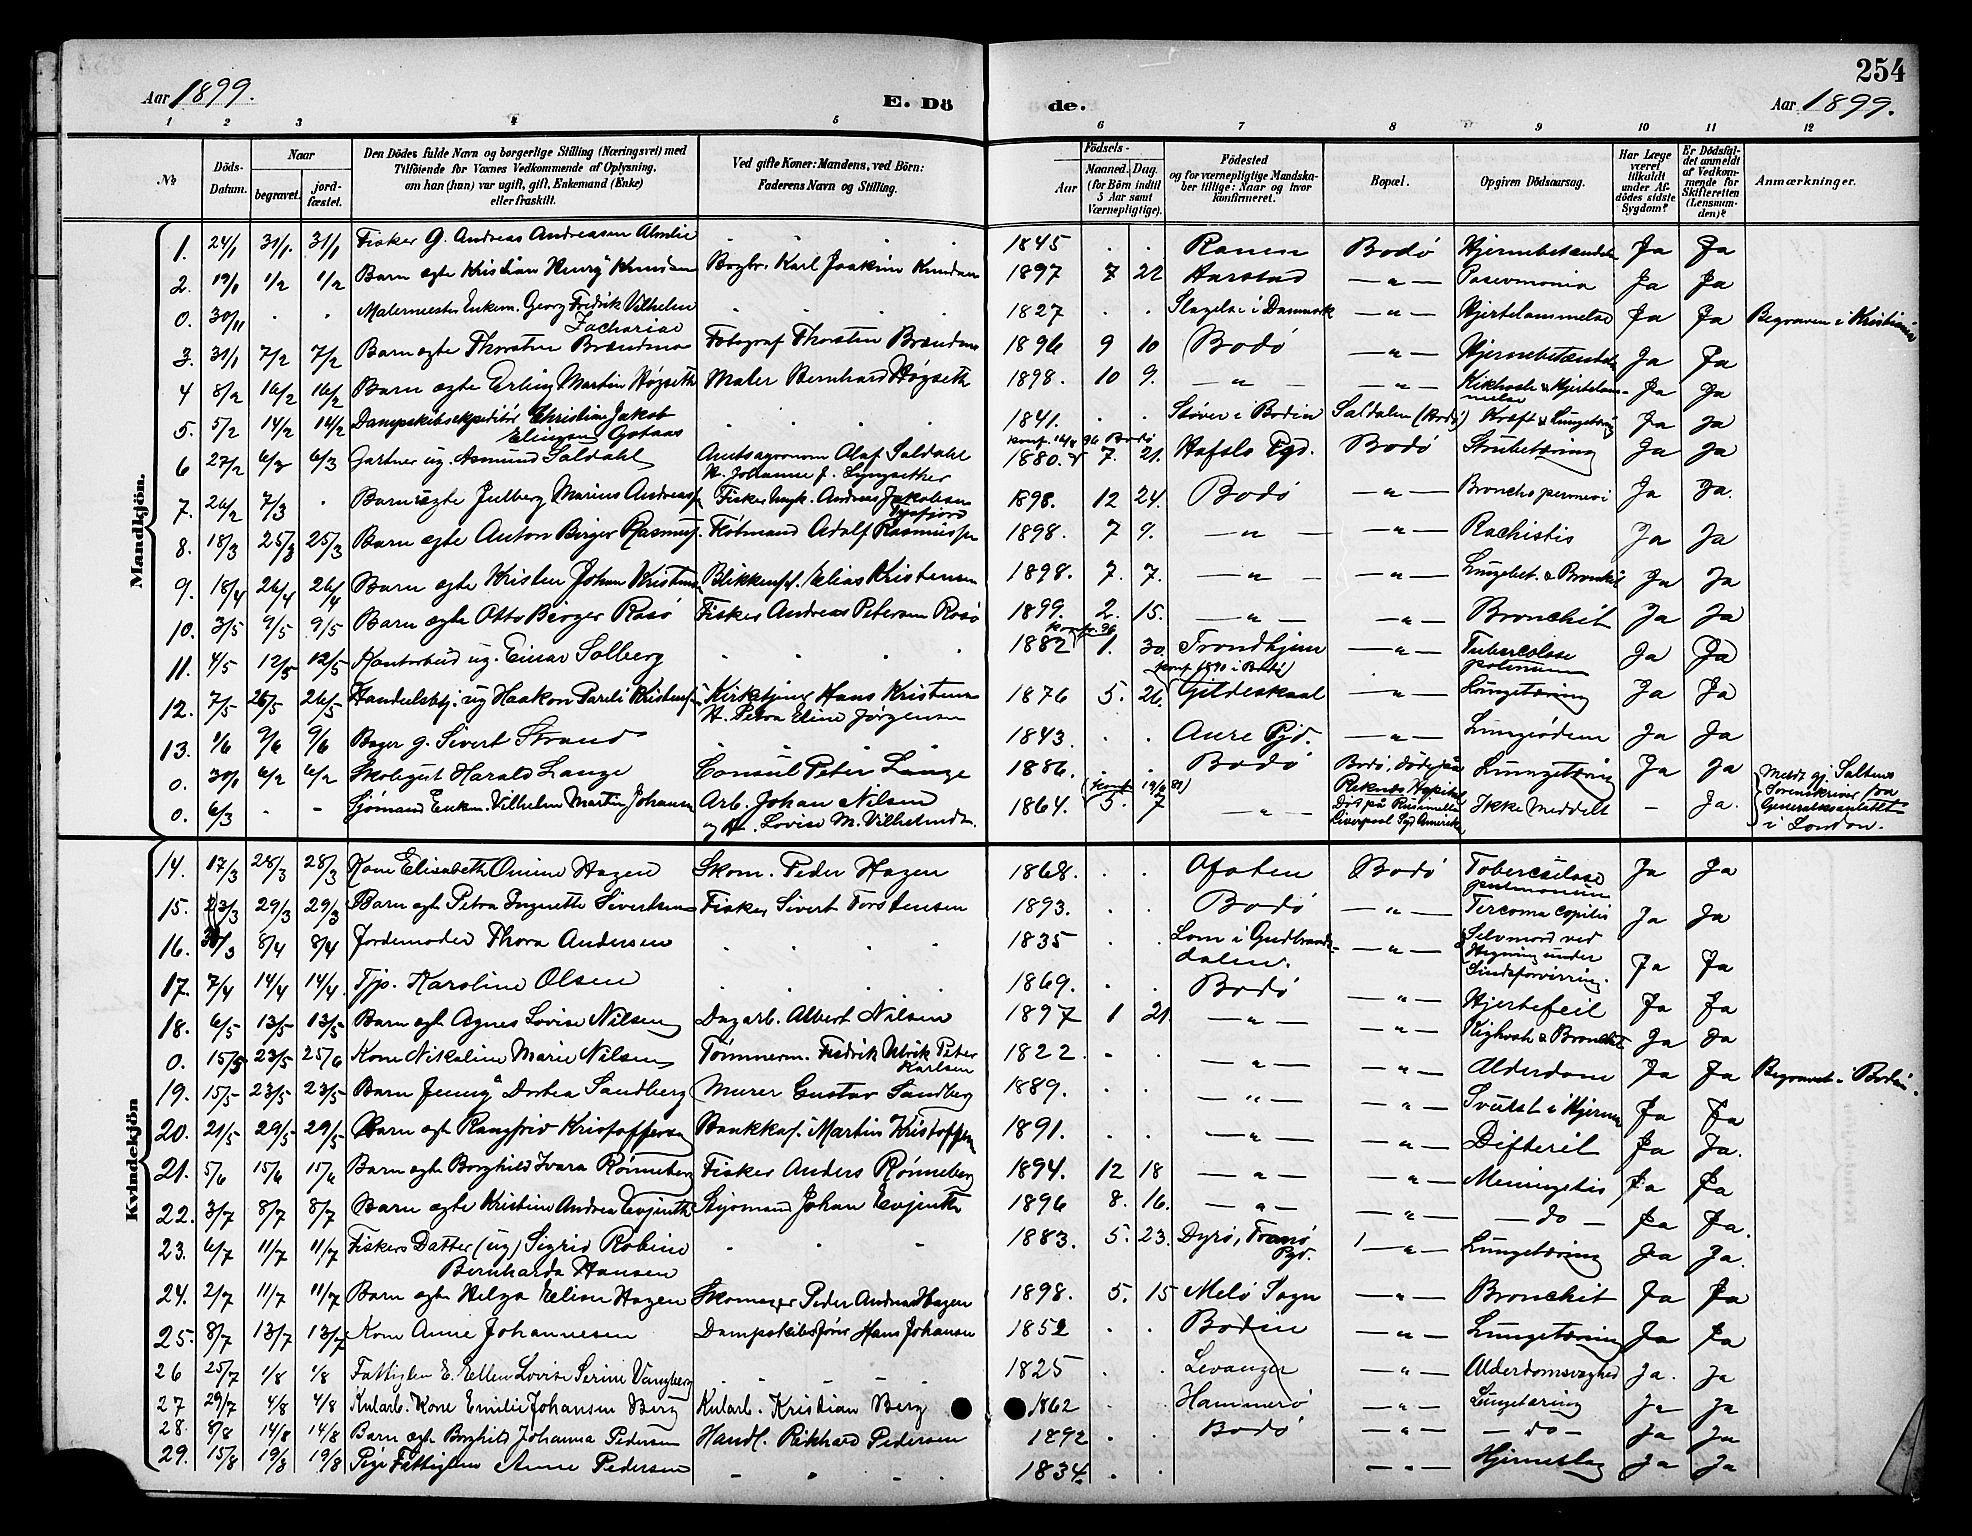 254
Aar 1899. E. Dö de. Aar 1899.
1 2 3 4 5 6 7 8 9 10 11 12
No Döds-Datum. Naar begravet. jord-fæstet. Den Dödes fulde Navn og borgerlige Stilling (Næringsvei) med Tilföiende for Voxnes Vedkommende af Oplysning, om han (hun) var ugift, gift, Enkemand (Enke) eller fraskilt. Ved gifte Koner: Mandens, ved Börn: Faderens Navn og Stilling. Födsels- Aar Maaned. Dag. (for Börn indtil 5 Aar samt Værnepligtige). Födested og for værnepligtige Mandskaber tillige: Naar og hvor konfirmeret. Bopæl. Opgiven Dödsaarsag. Har Læge været tilkaldt under Afdödes sidste Sygdom? Er Dödsfaldet anmeldt af Vedkommende for Skifteretten (Lensmanden)? Anmærkninger.
Mandkjön.
1. 24/1 31/1. 31/1 Fisker G. Andreas Andreasen Almlie 1845 Ranen Bodö Hjernebetændelse Ja Ja
2. 19/1 1/2 1/2 Barn ægte Kristian Henry Knudsen Bogbr. Karl Joakim Knudsen 1897 7 22 Harstad —"— Ja Ja
0. 30/11 Malermester Enkem. Georg Fredrik Vilhelm Zachariae 1827 Slagelse i Danmark —"— Hjertelammelse Ja Ja Begraven i Kristiania
3. 31/1 7/2 7/2 Barn ægte Thorsten Brændmo Fotograf Thorsten Brændmo 1896 9 10 Bodö —"— Hjernebetændelse Ja Ja
4 8/2 16/2 16/2 Barn ægte Erling Martin Høgseth Maler Bernhard Høgseth 1898. 10 9. —"— —"— Kikhoste & Hjertelammelse Ja Ja
5. 5/2 14/2 14/2 Dampskibsekspeditör Christian Jakob Elingsen Gotaas 1841. Støver i Bodin Saldalen (Bodö) Kræft & Lungetæring Ja Ja
6 27/2 6/3 6/3 Gartner ug. Asmund Saldahl Amtsagronom Olaf Saldahl H. Johanne J. Lyngsether 1880. 7. 21. Hafslo Pgd. Bodö Strubetæring Ja Ja
7. 26/2 7/3 Barn uægte Julberg Marius Andreass. Fisker Andreas Jakobsen Tysfjord 1898. 12 24. Bodö —"— Ja Ja.
8. 18/3 25/3 25/3 Barn ægte Anton Birger Rasmuss. Köbmand Adolf Rasmussen 1898. 7 9. —"— —"— Rachistis Ja Ja
9. 18/4 26/4 26/4 Barn ægte Kristen Johan Kristensen Blikkensl. Elias Kristensen 1898. 7. 7. —"— —"— Lungebet. & Bronkit Ja Ja
10. 3/5 9/5 9/5 Barn ægte Otto Birger Rosö Fisker Andreas Petersen Rosö 1899. 2. 15. —"— —"— Bronchit Ja Ja
11. 4/5 12/5 12/5 Kontorbud ug. Einar Solberg 1882 1. 30. Trondhjem —"— Tubercolose Ja Ja
12. 7/5 26/5 26/5 Handelsbtj. ug Haakon Pareli Kristensen Kirketjener Hans Kristensen H. Petra Eline Jørgensen 1876 5. 26. Gildeskaal —"— Lungetæring Ja Ja
13. 1/6 9/6 9/6 Bager g. Sivert Strand 1843. Aure Pgd. —"— Lungeødem Ja Ja
0. 30/1 6/2 6/2 Skolegut Harald Lange Consul Peter Lange 1886. Bodö Bodö, døde paa Reknes Hospital Lungetæring Ja Ja
0. 6/3 - - Sjömand Enkem. Vilhelm Martin Johansen Arb. Johan Nilsen og H. Lovise M. Vilhelmsd. 1864. 5. 7 —"— Død på Liverpool Syd Amerika Ikke Meddelt - Ja. Meldt gj. Saltens Sorenskriver fra Generalkonsulatet i London.
Kvindekjön
14. 17/3 28/3 28/3 Kone Elisabeth Omine Hagen Skom. Peder Hagen 1868. Ofoten Bodö Toberculose pulmonum Ja Ja
15. 23/3 29/3 29/3 Barn ægt Petra Ingnette Sivertsen Fisker Sivert Torstensen 1893. Bodö —"— Ja Ja
16. 30/3 8/4 8/4 Jordemoder Thora Andersen 1835 Lom i Gudbrandsdalen. —"— Selvmord ved Hægning under Sindsforvirring. Ja Ja
17. 7/4 14/4 14/4. Tjp. Karoline Olsen 1869. Bodö —"— Hjertefeil Ja Ja
18. 6/5 13/5 13/5 Barn ægt Agnes Lovise Nilsen Dagarb. Albert Nilsen 1897 1 21. —"— —"— Kighoste & Bronchit Ja Ja
0. 15/5 23/5 25/6 Kone Nikaline Marie Nilsen Tömmerm. Fredrik Ulrik Peter Karlsen 1822. —"— —"— Alderdom Ja Ja Begravet i Bodin.
19. 15/5 23/5 23/5 Barn Jenny Dortea Sandberg Murer Gustav Sandberg 1889. —"— —"— Svulst i Hjernen Ja Ja
20. 21/5 29/5 29/5 Barn ægt Rangfrid Kristoffersen Bankkas. Martin Kristoffersen 1891. —"— —"— Difterit Ja Ja.
21. 5/6 15/6 15/6 Barn ægte Borghild Ivara Rønneberg Fisker Anders Rønneberg 1894. 12 18 —"— —"— Meningitis Ja Ja
22. 3/7 8/7 8/7 Barn ægte Kristine Andrea Evjenth Styrmand Johan Evjenth 1896 8. 16. —"— —"— — do — Ja Ja.
23. 6/7 11/7 11/7 Fiskers Datter (ug) Sigrid Robine Bernharda Hansen 1883. 5. 23. Dyrö, Tranö Pgd. —"— Lungetæring Ja Ja.
24. 2/7 11/7 11/7 Barn ægte Helga Elise Hagen Skomager Peder Andreas Hagen 1898. 5. 15 Melö Sogn —"— Bronchit Ja Ja
25. 8/7 13/7 13/7 Kone Anne Johannesen Hans Johansen 1852 Bodin —"— Lungetæring Ja Ja
26 25/7 1/8 1/8 Fattiglem E. Ellen Lovise Serine Vangberg 1825 Levanger —"— Alderdomssvaghed Ja. Ja
27 29/7 4/8 4/8 Kularb. Kone Emilie Johansen Berg Kularb. Kristian Berg 1862 Hammerö —"— Lungetæring Ja Ja
28. 8/8 14/8 14/8 Barn ægte Borghild Johanna Pedersen Handl. Rikhard Pedersen 1892 Bodö —"— — do — Ja Ja
29. 15/8 19/8 19/8 Pige Fattiglem Anne Pedersen 1834. —"— Hjerneslag Ja Ja